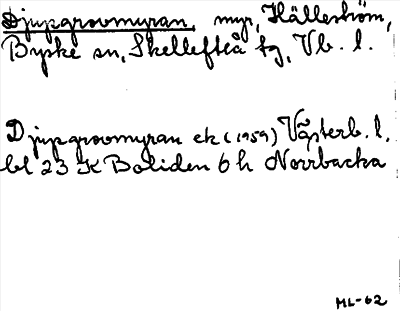 Djupgrovmyran, myr, Hälleström,
Byske sn, Skellefteå tg, Vb. l.
Djupgrovmyran ek (1959) Västerb. l.
bl 23 K Boliden 6 h Norrbacka
ML-62